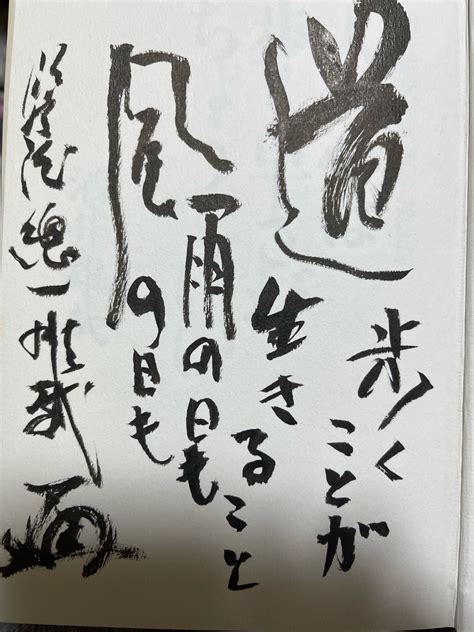 道
歩くことが
生きること
雨の日も
風の日も
總一
画